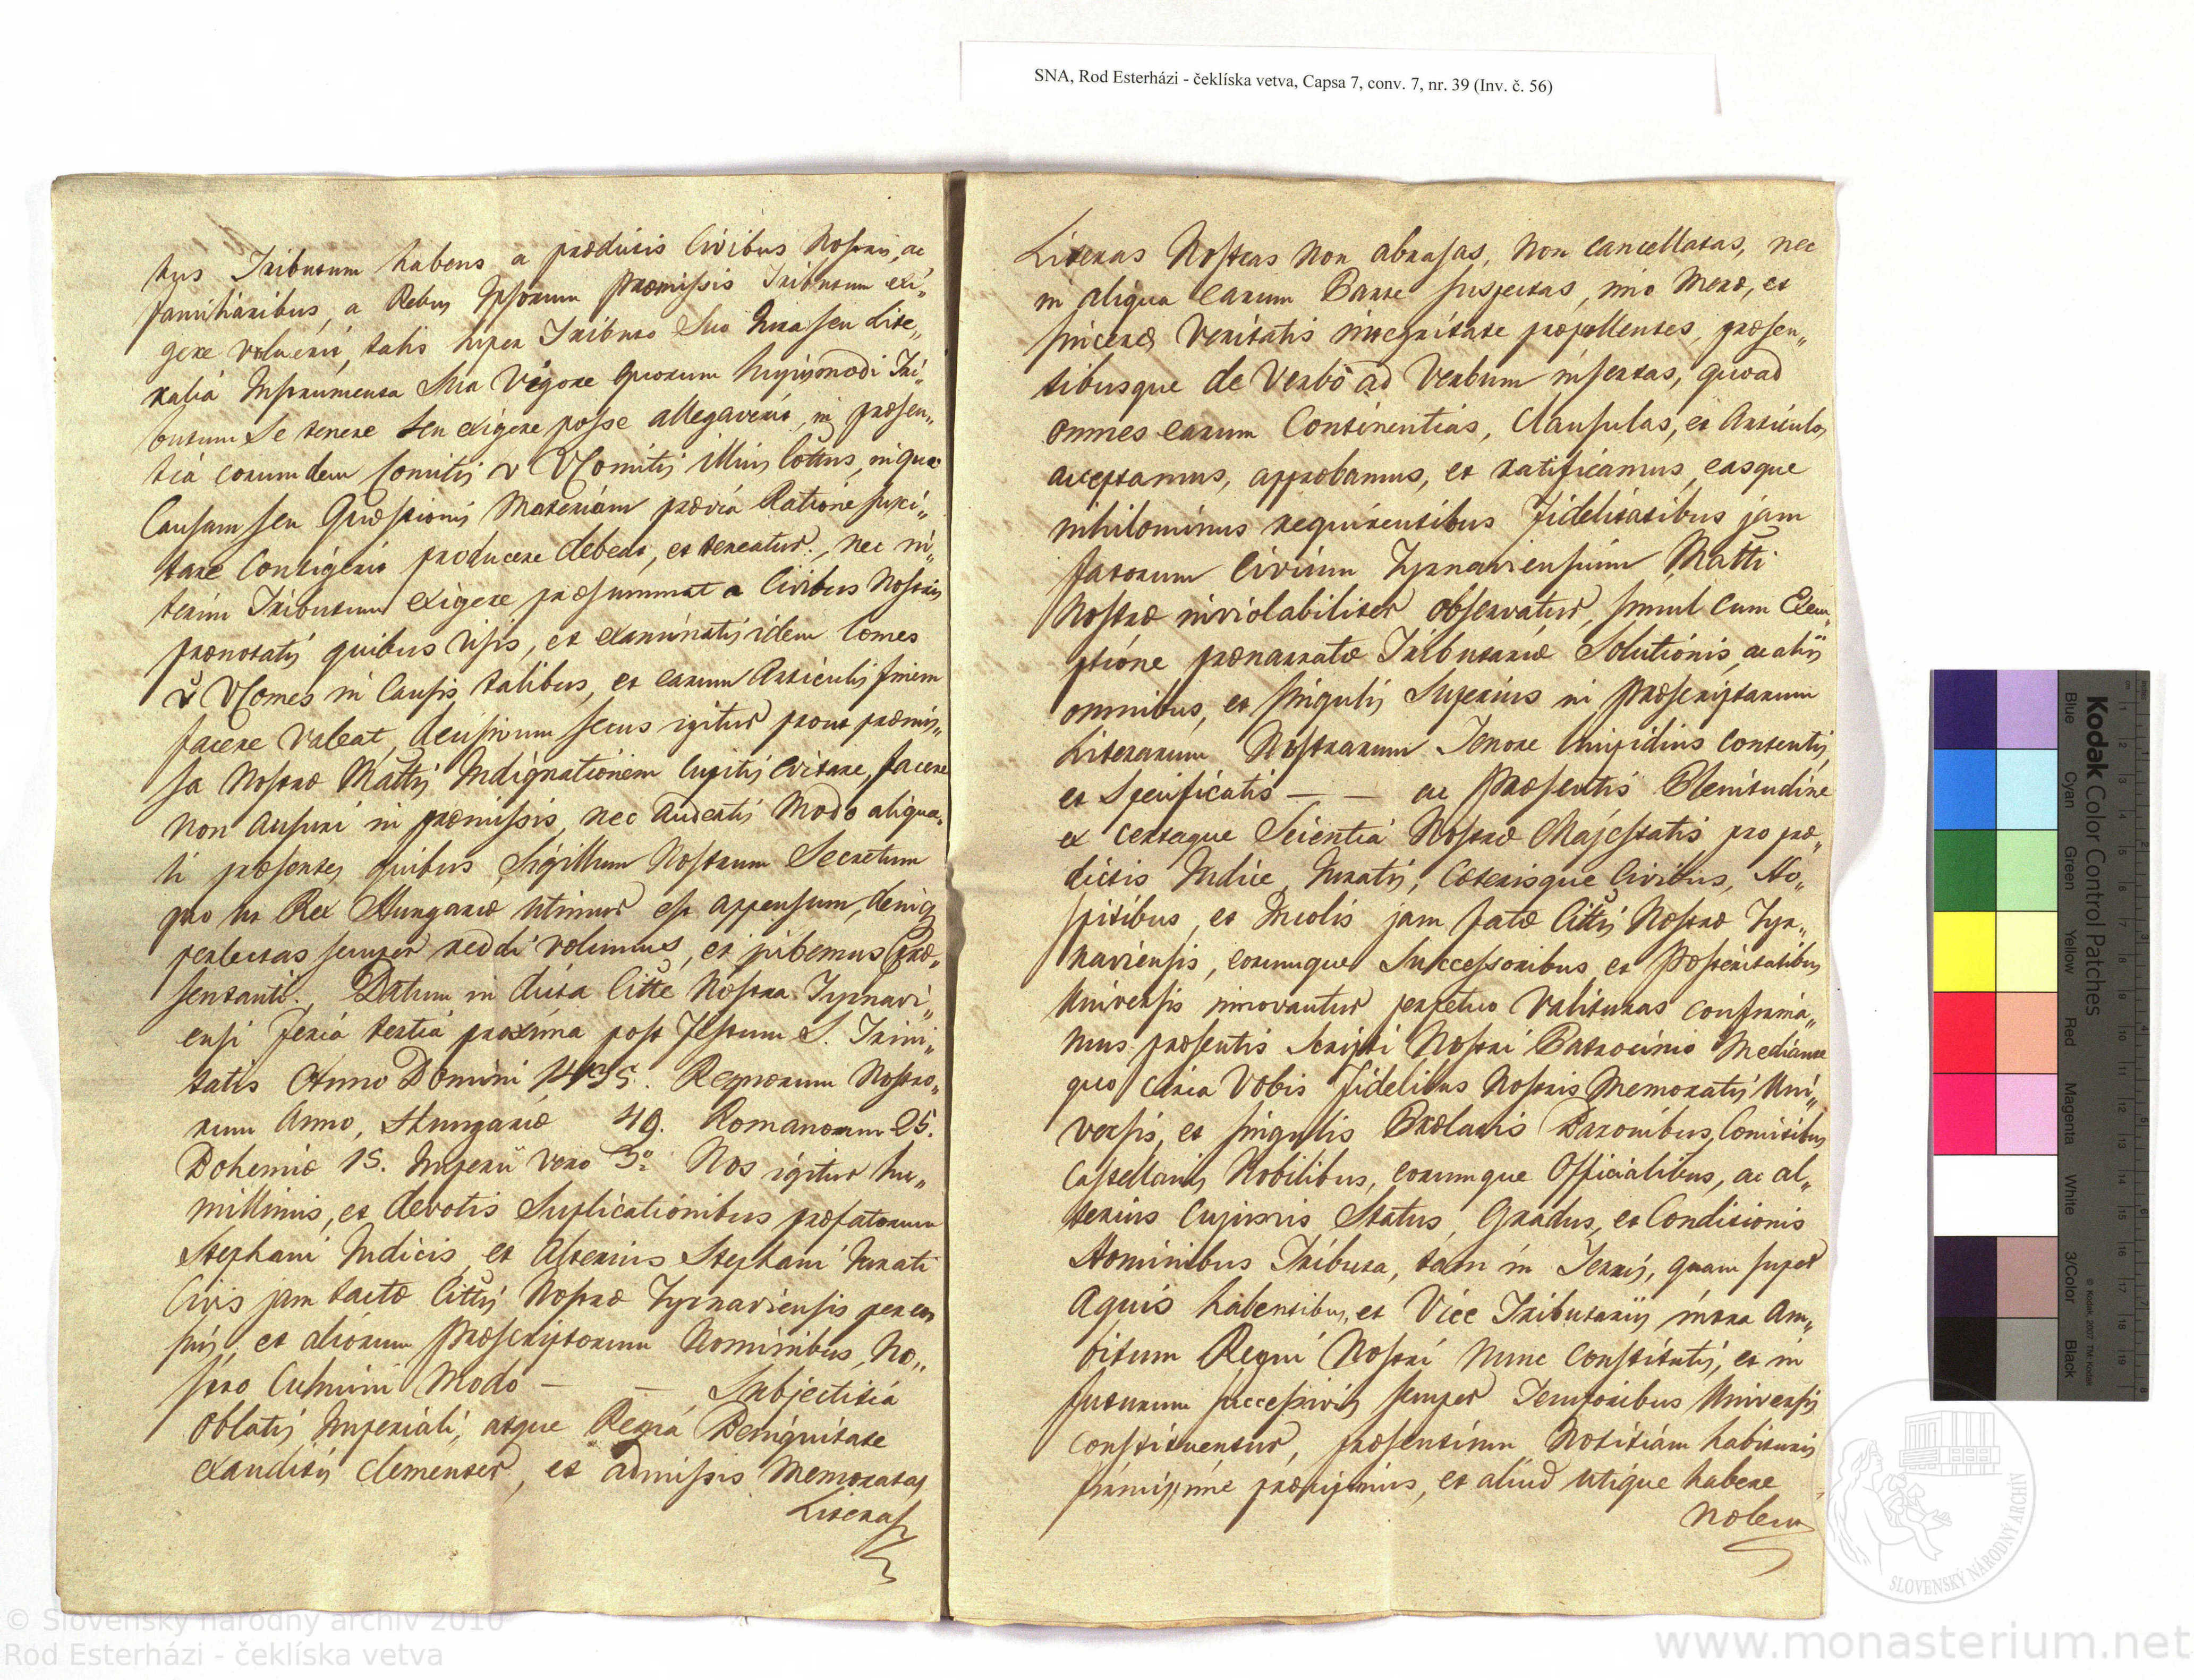 SNA, Rod Esterházi - čeklíska vetva, Capsa 7, conv. 7, nr. 39 (Inv. č. 56)
tus Tributum habens a prædictis Civibus Nostris, ac
familiaribus, a Rebus Ipsorum præmissis Tributum exi„
gere voluerit, talis super Tributo Suo Jura seu Lite„
ralia Instrumenta Sua Vigore quorum hujusmodi Tri„
butum Se tenere seu exigere posse allegaverit, in præsen„
tia eorumdem Comitis v VComitis illius Cottus, in quo
Causam seu Quæstionis Materiam prævia Ratione susci„
tare Contigerit producere debeat, et teneatur., nec in„
terim Tributum exigere præsummat a Civibus Nostris
prænotatis quibus visis, et examinatis idem Comes
v VComes in Causis talibus, et earum Articulis finem
facere Valeat, decisivum secus igitur prout præmis„
sa Nostræ Mattis Indignationem cupitis evitare, facere
non ausuri in præmissis, nec audeatis Modo aliqua„
li præsentes quibus Sigillum Nostrum Secretum
quo ut Rex Hungariæ utimur est appensum, denique
perlectas semper reddi volumus, et jubemus præ„
sentanti., Datum in dicta Citte Nostra Tyrnavi„
ensi feria tertia proxima post Festum S. Trini„
tatis Anno Domini 1435. Regnorum Nostro„
rum Anno, Hungariæ 49. Romanorum 25.
Bohemiæ 15. Imperii vero 3º Nos igitur hu„
millimis, et devotis Suplicationibus præfatorum
Stephani Judicis, et Alterius Stephani Jurati
Civis jam tactæ Cittis Nostræ Tyrnaviensis per eos
suis, et aliorum præscriptorum Nominibus, No„
stro Culmini Modo — — Subjectiva
oblatis Imperiali, atque Regia Benignitate
exauditis clementer, et admissis Memoratas
Literas
Literas Nostras non abrasas, non cancellatas, nec
in aliqua earum Parte suspectas, imo mera, et
sincera Veritatis integritate præpollentes, præsen„
tibusque de Verbo ad Verbum insertas, quoad
omnes earum Continentias, Clausulas, et Articulos
acceptamus, approbamus, et ratificamus, easque
nihilominus requirentibus Fidelitatibus jam
fatorum Civium Tyrnaviensium Matti
Nostræ inviolabiliter observatur, simul cum Exem„
ptione prænarratæ Tributariæ Solutionis, ac aliis
omnibus, et singulis Superius in præscriptarum
Literarum Nostrarum Tenore limpidius contentis,
et Specificatis — — ac Præsentis Plenitudine
ex certaque Scientia Nostræ Majestatis pro præ„
dictis Judice, Juratis, Cæterisque Civibus, Ho„
spitibus, et Incolis jam fatæ Cittis Nostræ Tyr„
naviensis, eorumque Successoribus, et Posteritatibus
Universis innovantur perpetuo valituras confirma„
mus præsentis Scripti Nostri Patrocinio Mediante
quo circa Vobis Fidelibus Nostris Memoratis Uni„
versis, et singulis Prælatis Baronibus, Comitibus
Castellanis Nobilibus, eorumque Officialibus, ac al„
terius Cujusvis Status, Gradus, et Conditionis
Hominibus Tributa, tam in Terris, quam super
Aquis habentibus, et Vice Tributariis intra Am„
bitum Regni Nostri nunc constitutis, et in
futurum successivis semper Temporibus Universis
constituentur, præsentium Notitiam habituris
firmissime præcipimus, et aliud utique habere
nolem
Kodak Color Control Patches
Blue Cyan Green Yellow Red Magenta White 3/Color Black
© Kodak, 2007 TM: Kodak
SLOVENSKÝ NÁRODNÝ ARCHÍV
© Slovenský národný archív 2010
Rod Esterházi - čeklíska vetva
www.monasterium.net